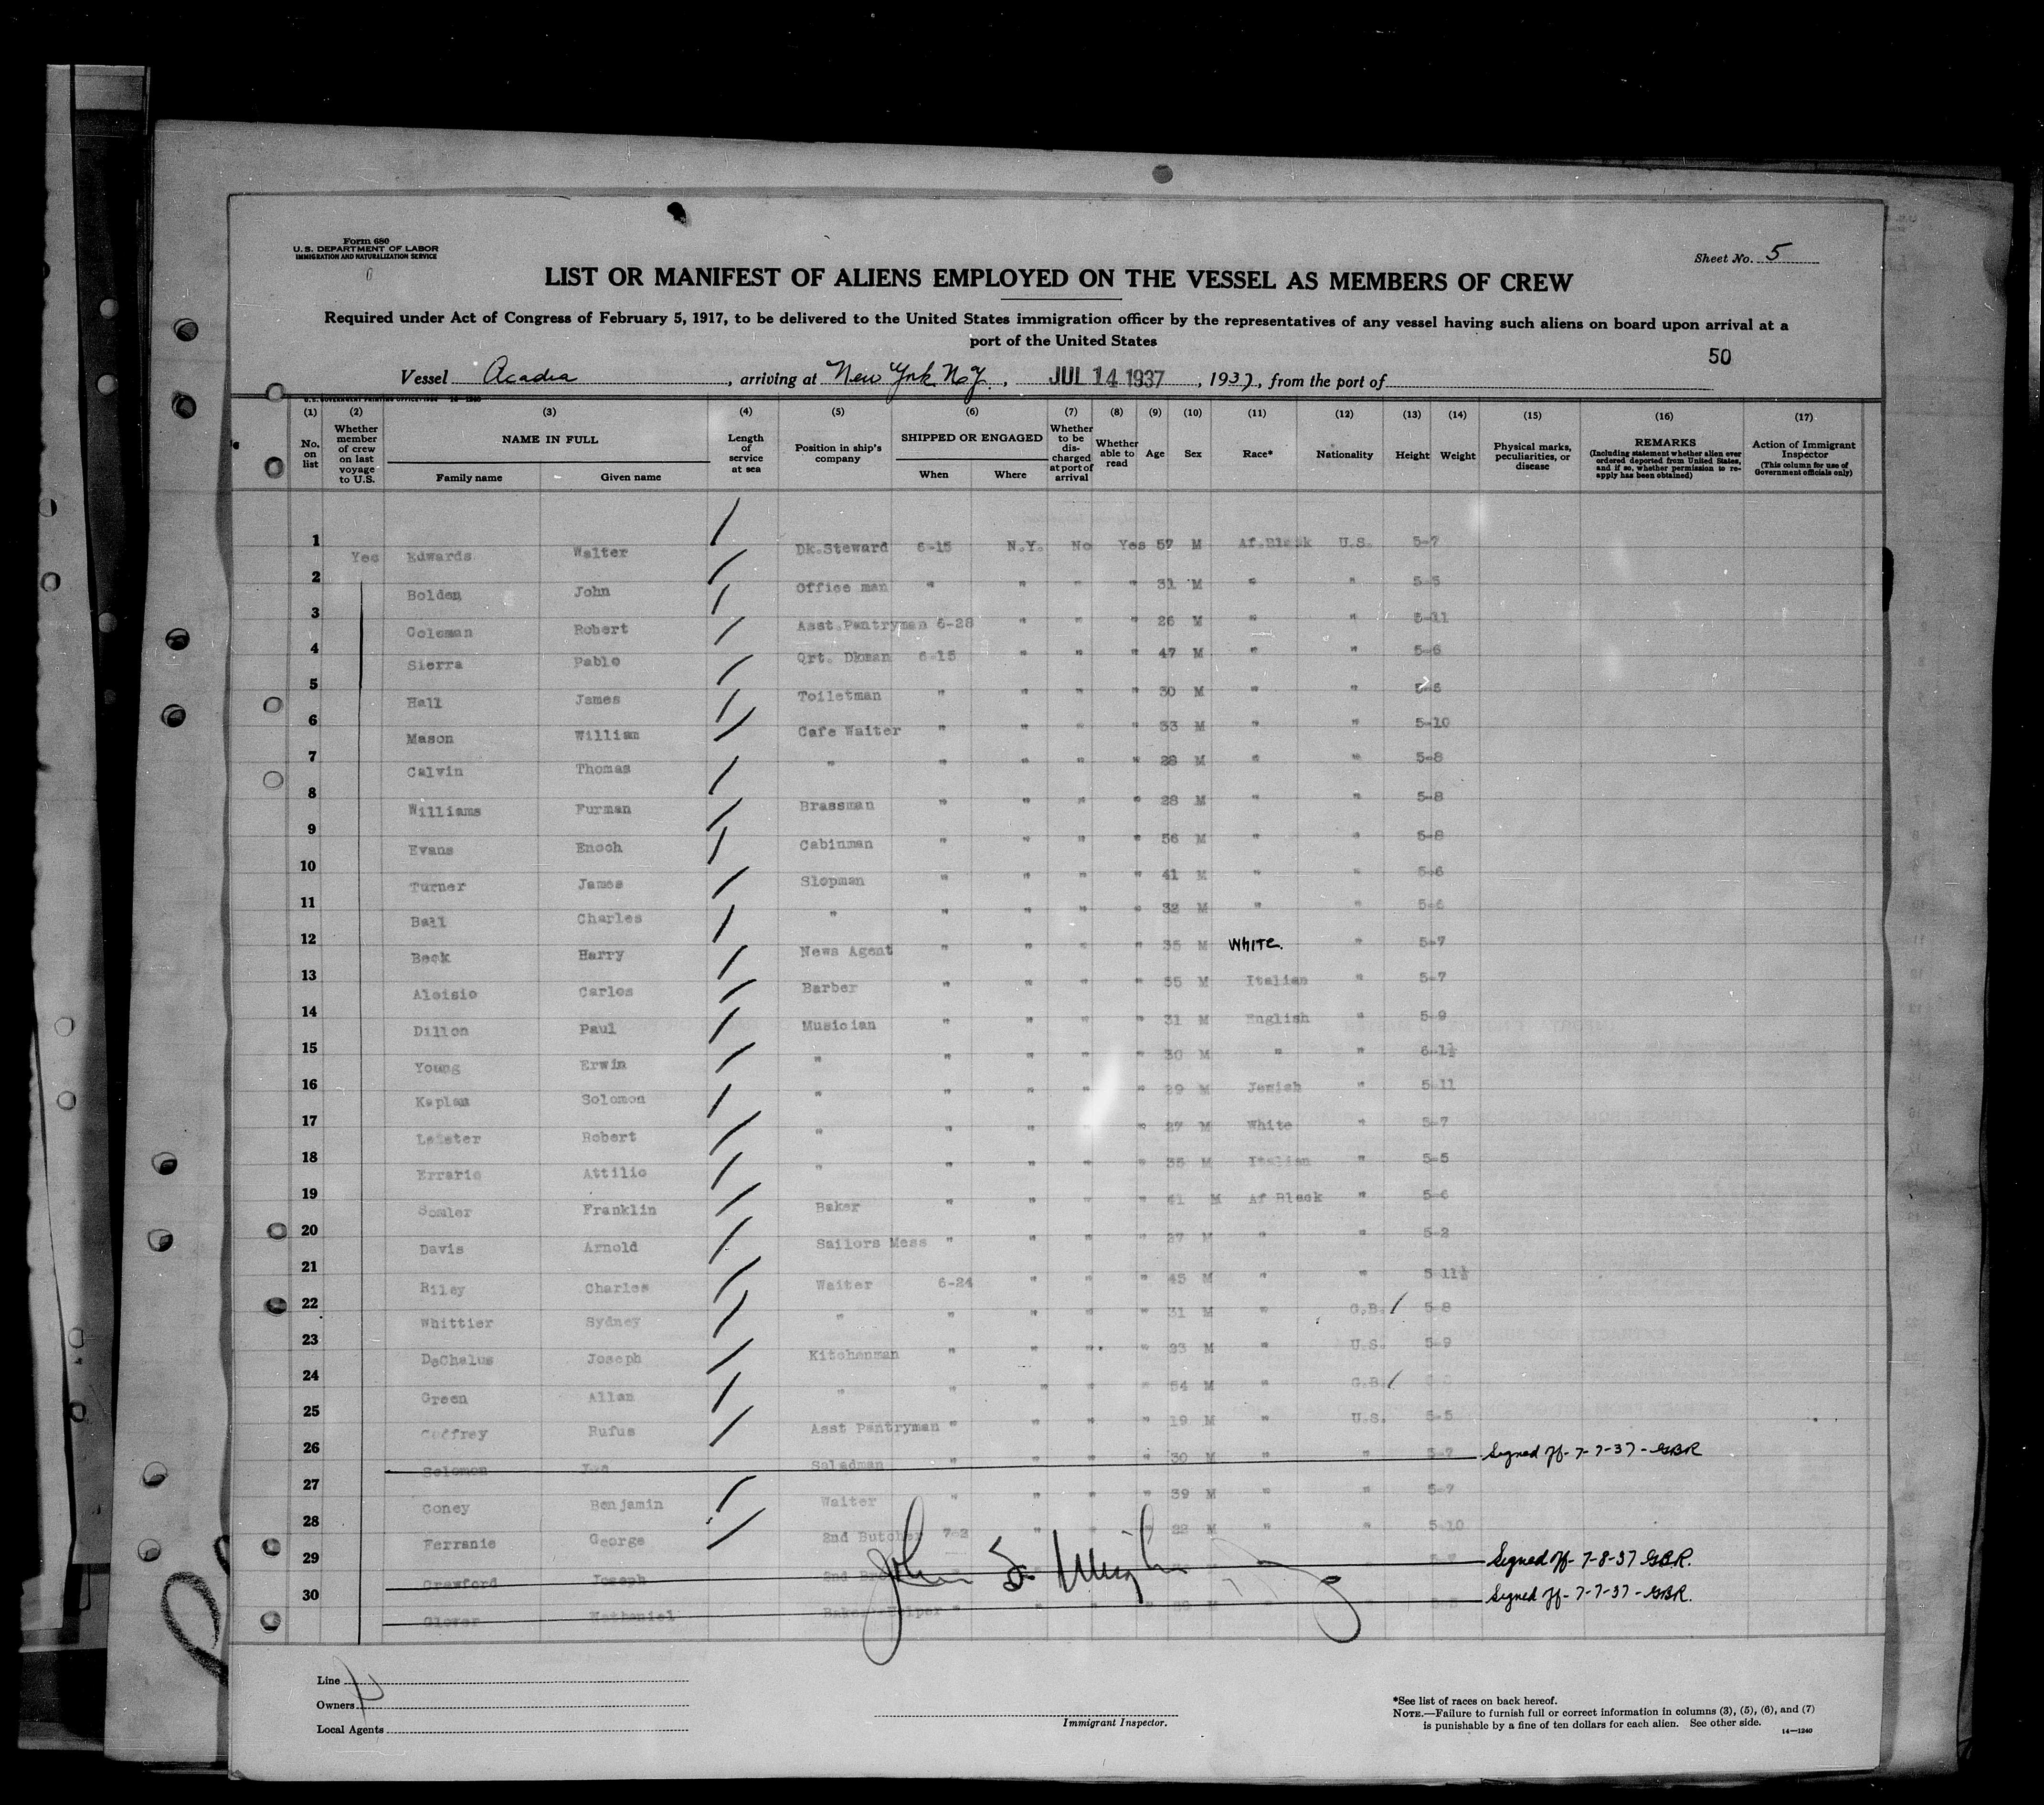 Form 680
U. S. DEPARTMENT OF LABOR
IMMIGRATION AND NATURALIZATION SERVICE
Sheet No. 5
LIST OR MANIFEST OF ALIENS EMPLOYED ON THE VESSEL AS MEMBERS OF CREW
Required under Act of Congress of February 5, 1917, to be delivered to the United States immigration officer by the representatives of any vessel having such aliens on board upon arrival at a
port of the United States
50
Vessel Acadia, arriving at New York N.Y., JUL 14 1937, 1937, from the port of
(1) (2) (3) (4) (5) (6) (7) (8) (9) (10) (11) (12) (13) (14) (15) (16) (17)
No. on list
Whether member of crew on last voyage to U.S.
NAME IN FULL
Family name Given name
Length of service at sea
Position in ship's company
SHIPPED OR ENGAGED
When Where
Whether to be discharged at port of arrival
Whether able to read
Age
Sex
Race*
Nationality
Height
Weight
Physical marks, peculiarities, or disease
REMARKS
(Including statement whether alien ever ordered deported from United States, and if so, whether permission to re-apply has been obtained)
Action of Immigrant Inspector
(This column for use of Government officials only)
1 Yes Edwards Walter Dk.Steward 6-15 N.Y. No Yes 57 M Af.Black U.S. 5-7
2 Bolden John Office man " " " " 31 M " " 5-5
3 Coleman Robert Asst.Pantryman 6-28 " " " 26 M " " 5-11
4 Sierra Pablo Qrt. Dkman 6-15 " " " 47 M " " 5-6
5 Hall James Toiletman " " " " 30 M " "
6 Mason William Cafe Waiter " " " " 33 M " " 5-10
7 Calvin Thomas " " " " " 28 M " " 5-8
8 Williams Furman Brassman " " " " 28 M " " 5-8
9 Evans Enoch Cabinman " " " " 56 M " " 5-8
10 Turner James Slopman " " " " 41 M " " 5-6
11 Ball Charles " " " " " 32 M " " 5-6
12 Beck Harry News Agent " " " " 35 M WHITE. " 5-7
13 Aloisio Carlos Barber " " " " 55 M Italian " 5-7
14 Dillon Paul Musician " " " " 31 M English " 5-9
15 Young Erwin " " " " " 30 M " " 6-1½
16 Kaplan Solomon " " " " " 29 M Jewish " 5-11
17 Leister Robert " " " " " 27 M White " 5-7
18 Errario Attilio " " " " " 35 M Italian " 5-5
19 Franklin Baker " " " " 41 M Af Black " 5-6
20 Davis Arnold Sailors Mess " " " " 27 M " " 5-2
21 Riley Charles Waiter 6-24 " " " 45 M " " 5-11½
22 Whittier Sydney " " " " " 31 M " G.B. / 5-8
23 DeChalus Joseph Kitchenman " " " " 33 M " U.S. 5-9
24 Green Allan " " " " " 54 M " G.B. /
25 Godfrey Rufus Asst Pantryman " " " " 19 M " U.S. 5-5
26 Solomon Saladman " " " " 30 M " " 5-7 Signed off- 7-7-37- GBR
27 Coney Benjamin Waiter " " " " 39 M " " 5-7
28 Ferranie George 2nd Butcher 7-2 " " " 22 M " " 5-10
29 Crawford Joseph 2nd Signed off- 7-8-37 GBR.
30 Glover Nathaniel Baker Helper " Signed off- 7-7-37- GBR.
Line
Owners
Local Agents
Immigrant Inspector.
*See list of races on back hereof.
NOTE.—Failure to furnish full or correct information in columns (3), (5), (6), and (7)
is punishable by a fine of ten dollars for each alien. See other side.
14—1240